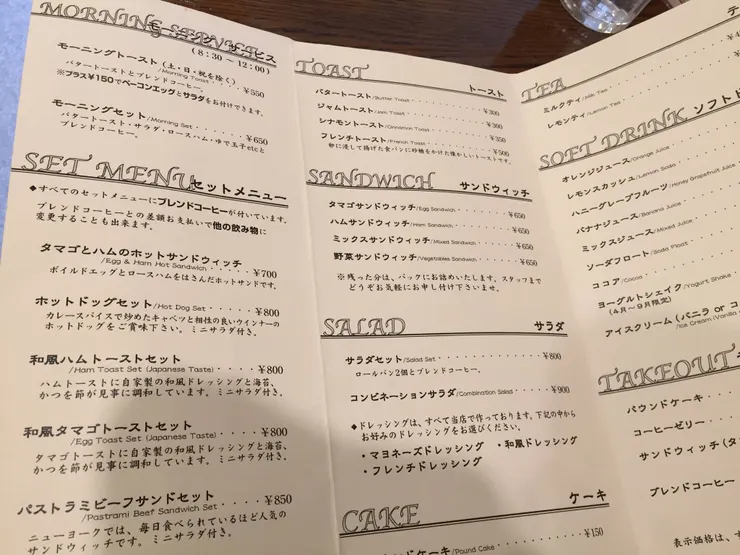 MORNING SERVICE
(8:30～12:00)
モーニングトースト(土・日・祝を除く)
/Morning Toast・・・¥550
バタートーストとブレンドコーヒー。
※プラス¥150でベーコンエッグとサラダをお付けできます。
モーニングセット/Morning Set・・・・・¥650
バタートースト・サラダ・ロースハム・ゆで玉子etcと
ブレンドコーヒー。
SET MENU セットメニュー
◆すべてのセットメニューにブレンドコーヒーが付いています。
ブレンドコーヒーとの差額お支払いで他の飲み物に
変更することも出来ます。
タマゴとハムのホットサンドウィッチ
/Egg & Ham Hot Sandwich・・・・・¥700
ボイルドエッグとロースハムをはさんだホットサンドです。
ホットドッグセット/Hot Dog Set・・・・¥800
カレースパイスで炒めたキャベツと相性の良いウインナーの
ホットドッグをご賞味下さい。ミニサラダ付き。
和風ハムトーストセット
/Ham Toast Set (Japanese Taste)・・・・¥800
ハムトーストに自家製の和風ドレッシングと海苔、
かつを節が見事に調和しています。ミニサラダ付き。
和風タマゴトーストセット
/Egg Toast Set (Japanese Taste)・・・・¥800
タマゴトーストに自家製の和風ドレッシングと海苔、
かつを節が見事に調和しています。ミニサラダ付き。
パストラミビーフサンドセット
/Pastrami Beef Sandwich Set・・・・¥850
ニューヨークでは、毎日食べられているほど人気の
サンドウィッチです。ミニサラダ付き。
TOAST トースト
バタートースト/Butter Toast・・・・・¥300
ジャムトースト/Jam Toast・・・・・¥300
シナモントースト/Cinnamon Toast・・・・・¥350
フレンチトースト/French Toast・・・・・¥500
卵に浸して揚げた食パンに砂糖をかけた懐かしいトーストです。
SANDWICH サンドウィッチ
タマゴサンドウィッチ/Egg Sandwich・・・・・¥650
ハムサンドウィッチ/Ham Sandwich・・・・・¥650
ミックスサンドウィッチ/Mixed Sandwich・・・・・¥650
野菜サンドウィッチ/Vegetables Sandwich・・・・・¥650
※残った分は、パックにお詰めいたします。スタッフまで
どうぞお気軽にお申し付け下さいませ。
SALAD サラダ
サラダセット/Salad Set・・・・・¥800
ロールパン2個とブレンドコーヒー。
コンビネーションサラダ/Combination Salad・・・・・¥900
◆ドレッシングは、すべて当店で作っております。下記の中から
お好みのドレッシングをお選びください。
・マヨネーズドレッシング ・和風ドレッシング
・フレンチドレッシング
CAKE ケーキ
ドケーキ/Pound Cake・・・・・¥150
TEA テ
ミルクティ/Milk Tea・・・・・¥4
レモンティ/Lemon Tea・・・・・
SOFT DRINK ソフトド
オレンジジュース/Orange Juice・・・
レモンスカッシュ/Lemon Soda・・・
ハニーグレープフルーツ/Honey Grapefruit Juice
バナナジュース/Banana Juice・・・
ミックスジュース/Mixed Juice・・・
ソーダフロート/Soda Float・・・
ココア/Cocoa・・・
ヨーグルトシェイク/Yogurt Shake・・
(4月～9月限定)
アイスクリーム(バニラ or コ
/Ice Cream (Vanilla
TAKEOUT
パウンドケーキ・・・
コーヒーゼリー・・・
サンドウィッチ(タ
ブレンドコーヒー
表示価格は、す